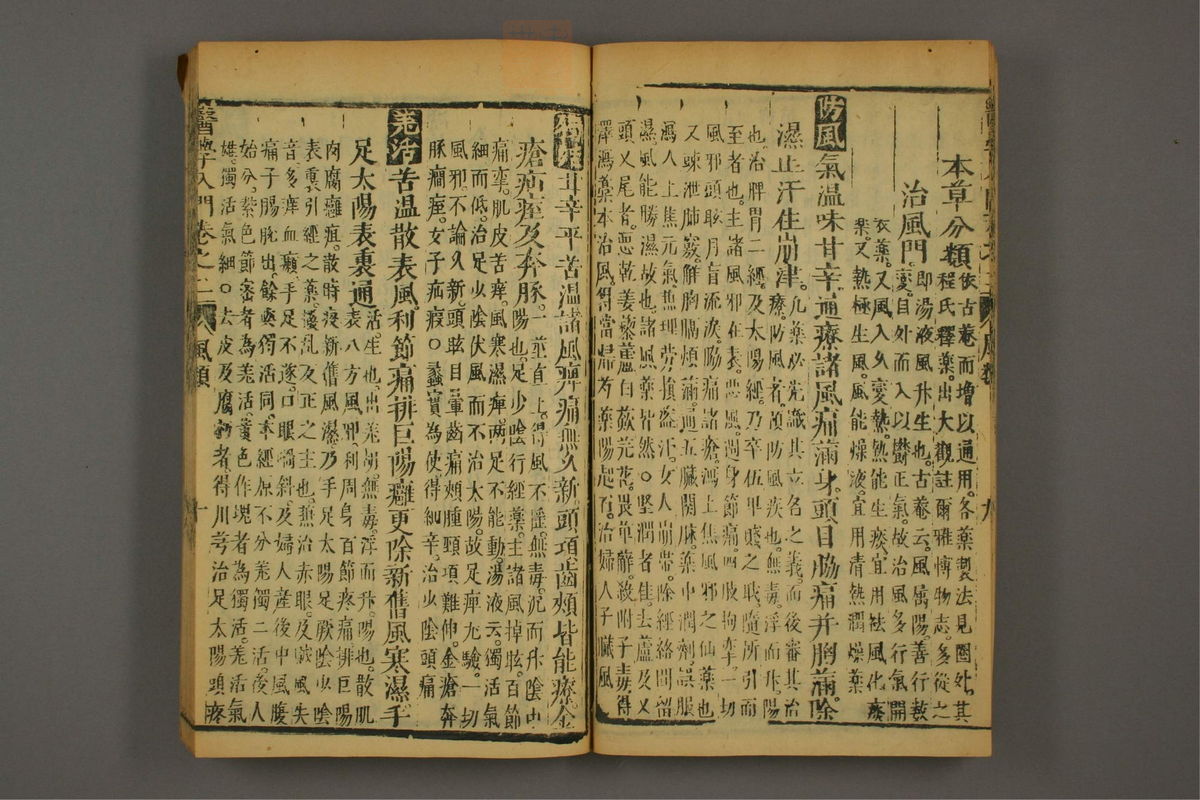 本草分類
依古菴而增以通用。各藥製法見圈外。其
程氏釋藥出大觀註爾雅博物志。多從之
治風門
即湯液風升生也。古菴云。風屬陽。善行數
變。自外而入。以鬱正氣。故治風多行氣開
表藥。又風入久變熱。熱能生痰。宜用祛風化痰
藥。又熱極生風。風能燥液。宜用清熱潤燥藥
防風氣溫味甘辛。通療諸風痛滿身。頭目脇痛并胸滿。除
濕止汗住崩津。
凡藥必先識其立名之義。而後審其治
療。防風者。預防風疾也。無毒。浮而升。陽
也。治脾胃二經。及太陽經。乃卒伍卑賤之職。隨所引而
至者也。主諸風邪在表。惡風。週身節痛。四肢拘牽。一切
風邪頭眩。目盲流淚。脇痛諸瘡。瀉上焦風邪之仙藥也
又疎泄肺竅。解胸膈煩滿。通五臟關脉。藥中潤劑。誤服
瀉人上焦元氣。兼理勞損盜汗。女人崩帶。除經絡間留
濕。風能勝濕故也。諸風藥皆然。○堅潤者佳。去蘆及叉
頭叉尾者。惡乾姜藜蘆白蘞芫花。畏萆薢。殺附子毒。得
澤瀉藁本治風。得當歸芍藥陽起石。治婦人子臟風
甘辛平苦溫。諸風痺痛無久新。頭項齒頰皆能療。金
瘡疝痓及奔豚。
一莖直上。得風不搖。無毒。沉而升。陰中
陽也。足少陰行經藥。主諸風掉眩。百節
痛攣。肌皮苦癢。風寒濕痺。兩足不能動。湯液云。獨活氣
細而低。治足少陰伏風。而不治太陽。故足痺尤驗。一切
風邪。不論久新。頭眩目暈。齒痛頰腫。頸項難伸。金瘡奔
豚癇痓。女子疝瘕○蠡實為使。得細辛。治少陰頭痛
羌活苦溫散表風。利節痛排巨陽癰。更除新舊風寒濕。手
足太陽表裏通
活。生也。出羌胡。無毒。浮而升。陽也。散肌
表八方風邪。利周身百節疼痛。排巨陽
肉腐癰疽。散時疫新舊風濕。乃手足太陽足厥陰少陰
表裏引經之藥。撥亂反正之主也。兼治赤眼。及賊風失
音多癢血癩。手足不遂。口眼喎斜。及婦人產後中風腹
痛。子腸脫出。餘與獨活同。本經原不分羌獨二活。後人
始分。紫色節密者為羌活。黃色作塊者為獨活。羌活氣
雄。獨活氣細○去皮及腐朽者。得川芎治足太陽頭疼
醫學入門卷之二
風類
十